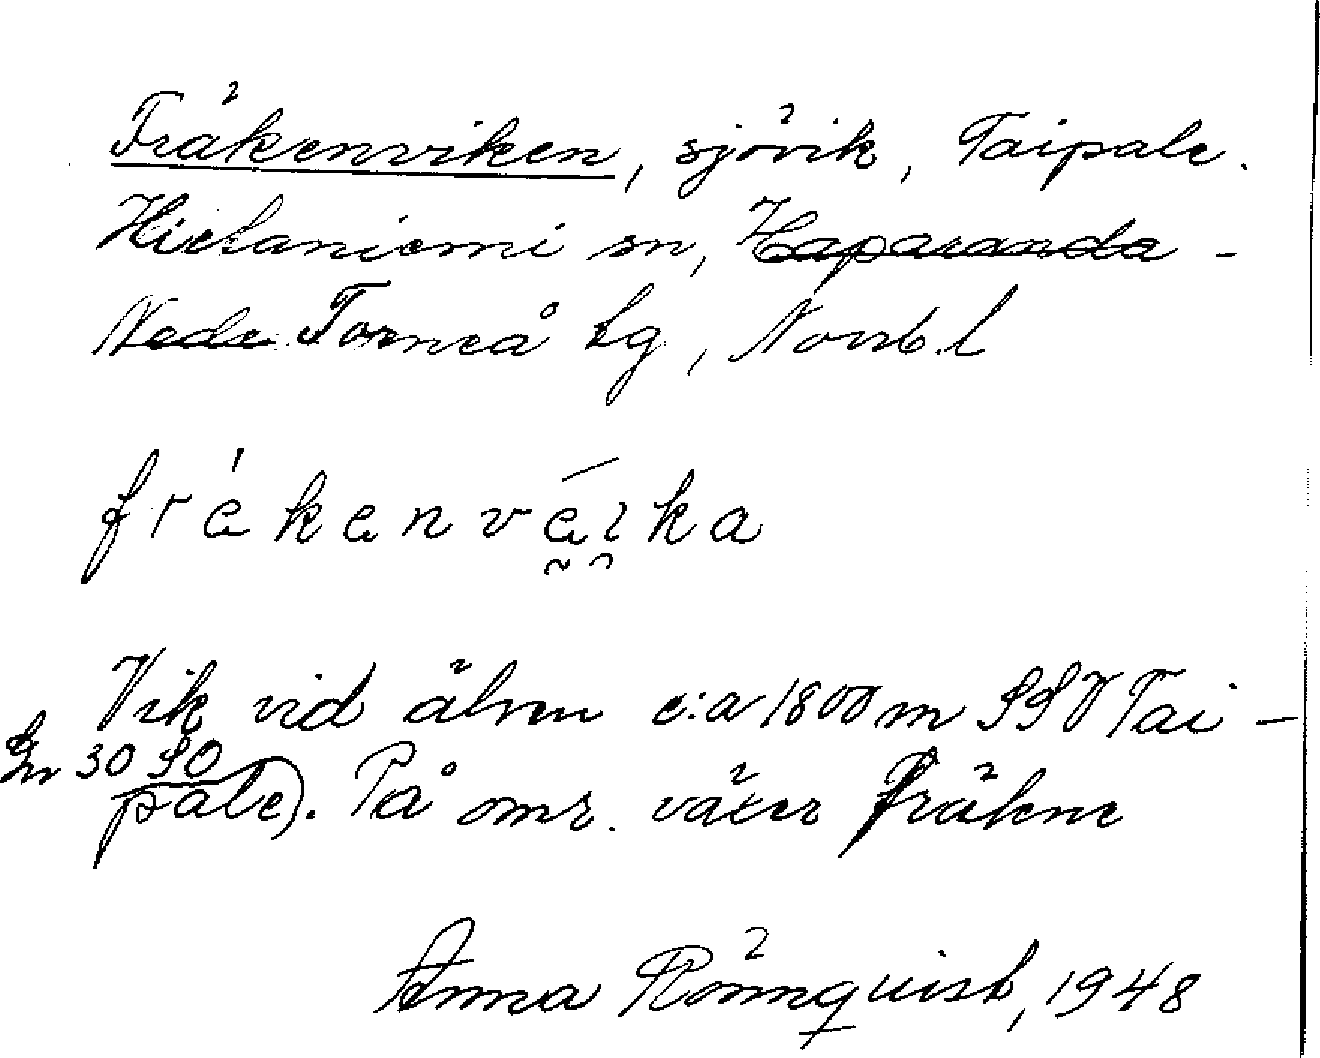 Fräkenviken, sjövik, Taipale.
Hietaniemi sn, Haparanda -
Neder Torneå tg, Norrb. l
frekenveika
Vik vid älven c:a 1800 m SSV Tai-
30 SO
pale). På omr. växer fräkne
Anna Rönnquist, 1948